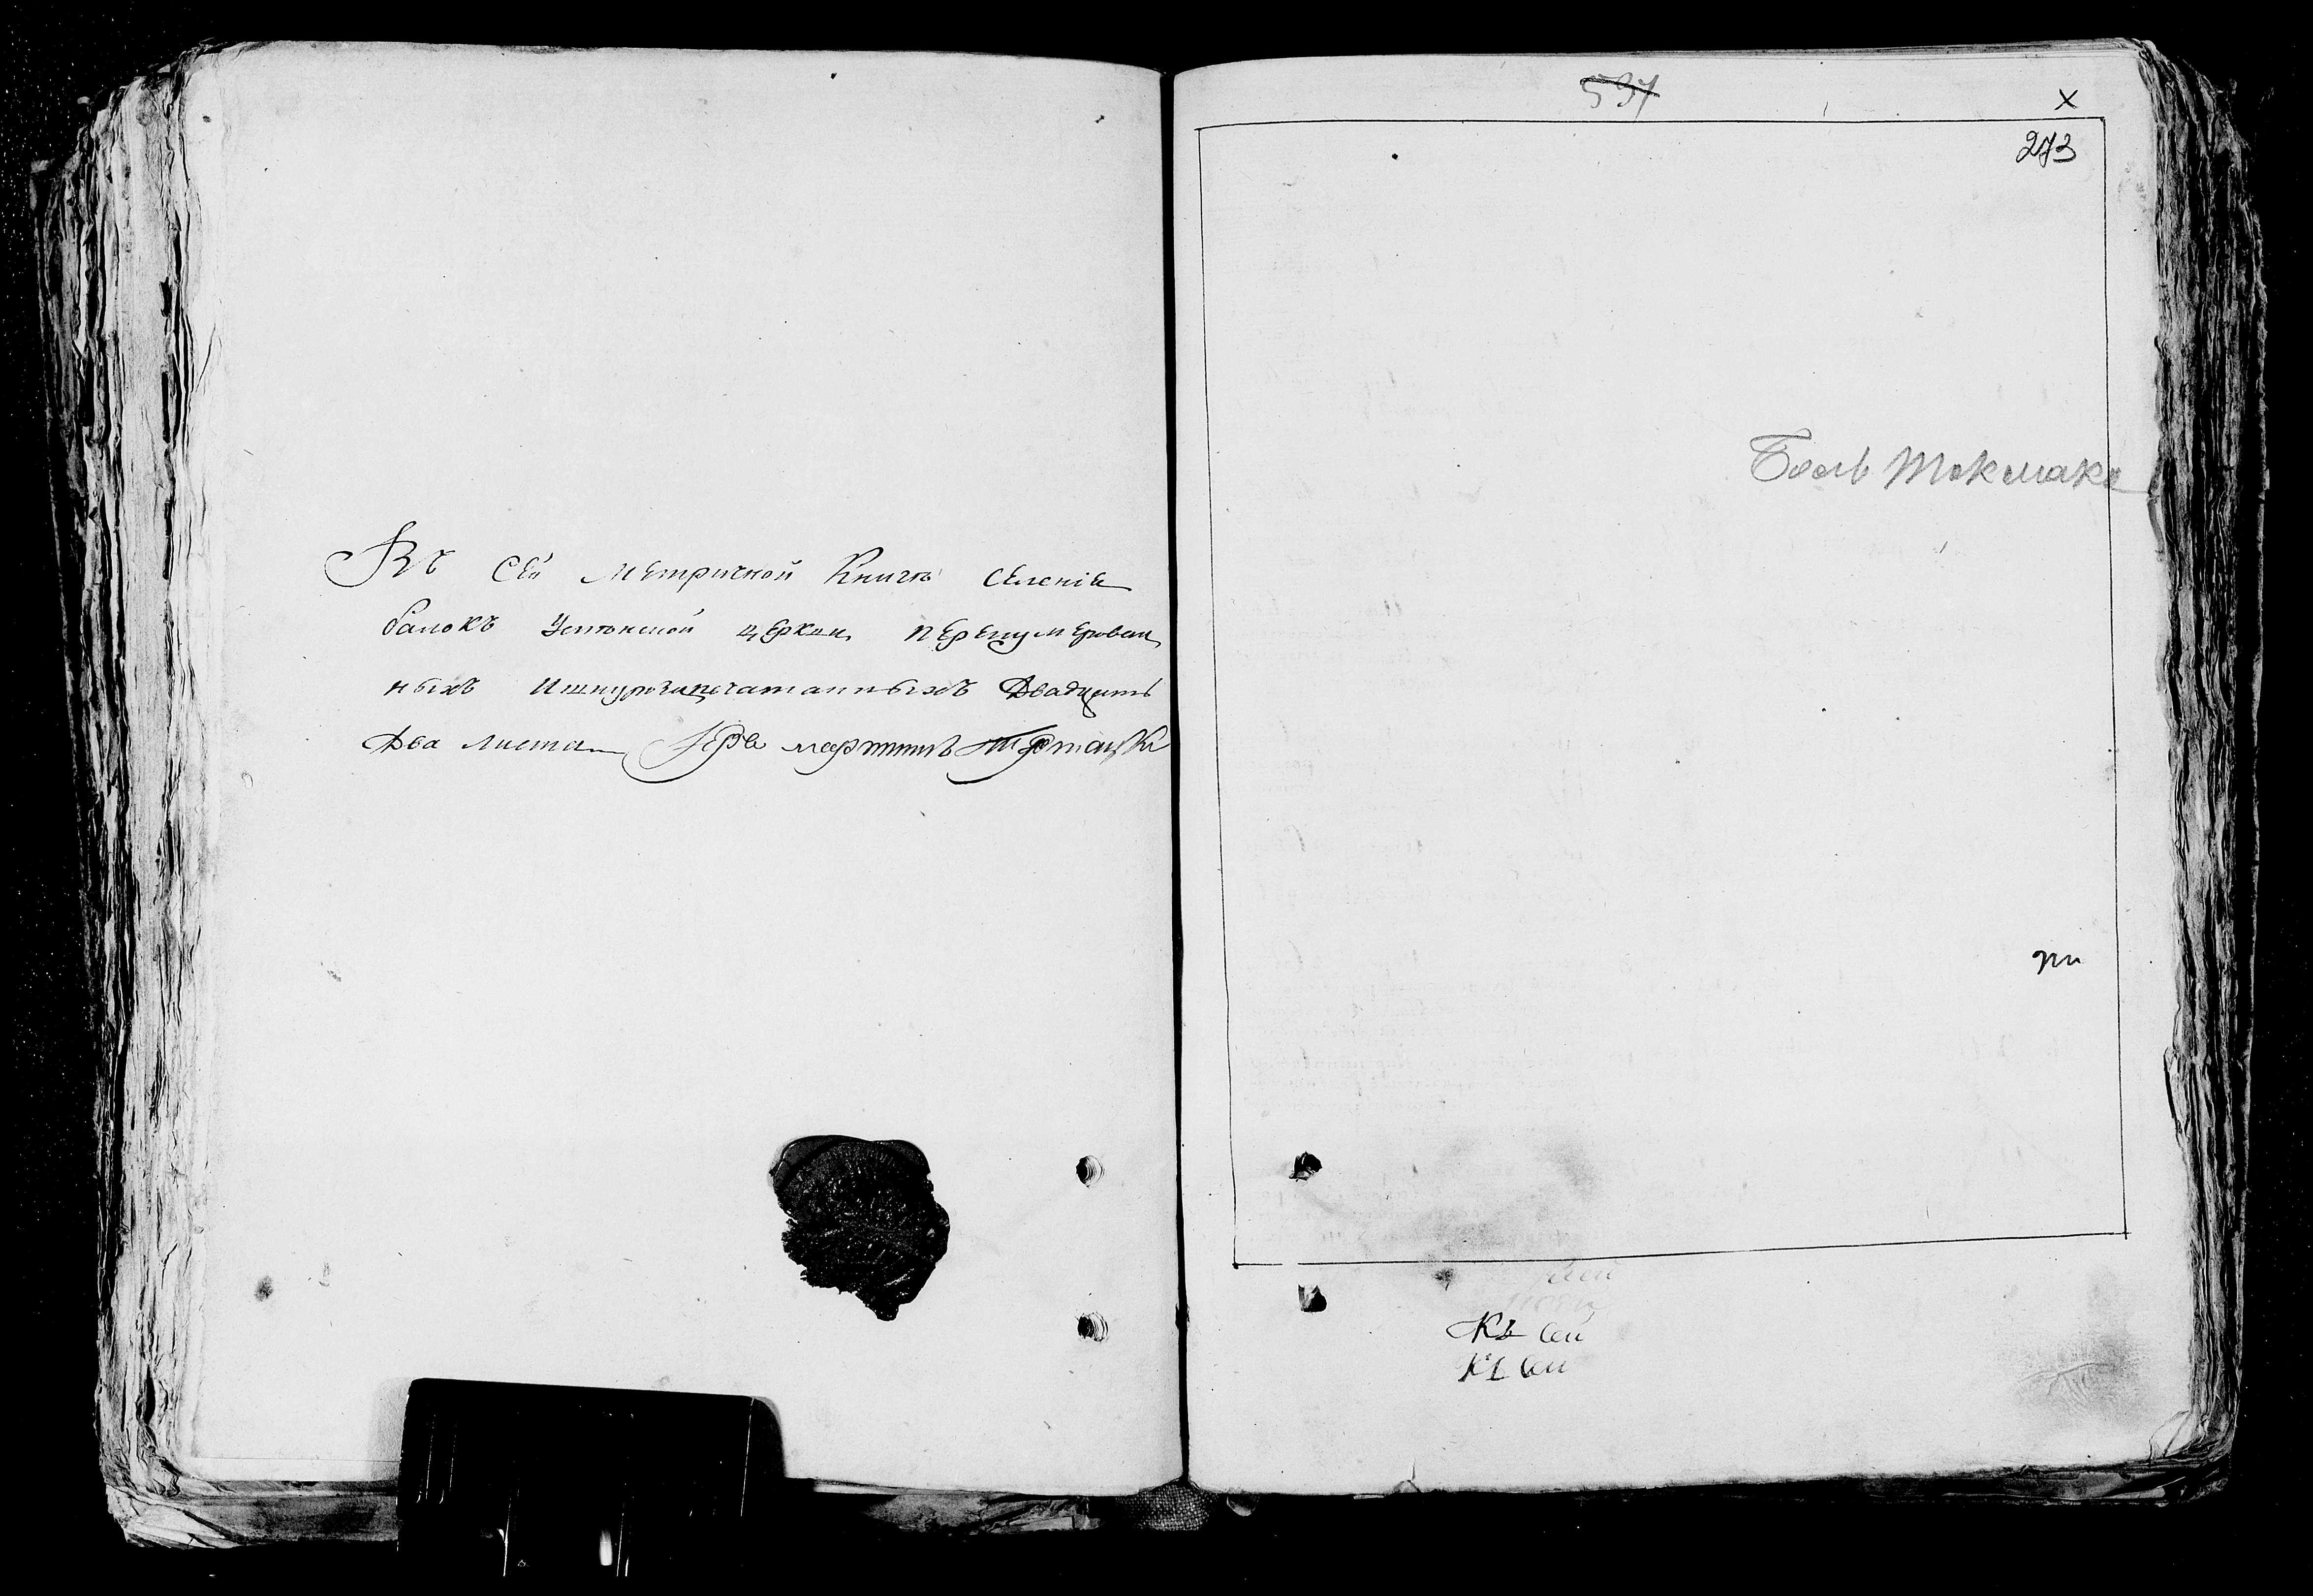 Въ сей Метричной Книгѣ Селенія
балокъ Успѣнской церкви перенумерован
ныхъ Ишнурозапечатанныхъ Двадцать
Два листа Іерей Мартинъ
597
х
273
Боль Токмака
Къ сей
Къ сей